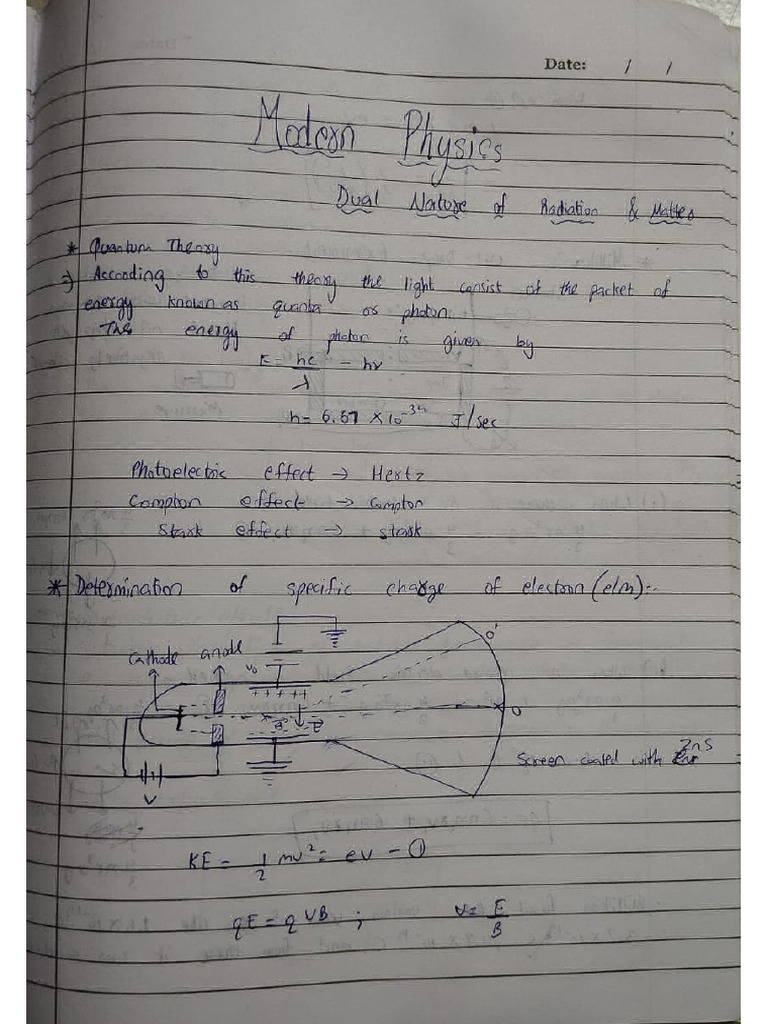 Date: / /
Modern Physics
Dual Nature of Radiation & Matter
* Quantum Theory
⇒ According to this theory the light consist of the packet of
energy known as quanta or photon.
The energy of photon is given by
E = hc/λ = hν
h = 6.67 × 10⁻³⁴ J/sec
Photoelectric effect → Hertz
Compton effect → Compton
Stark effect → Stark
* Determination of specific charge of electron (e/m):-
Cathode anode
V₀
+ + + + +
O'
O
B E
V
Screen coated with ZnS
KE = 1/2 mv² = eV - ①
qE = qVB ; V = E/B